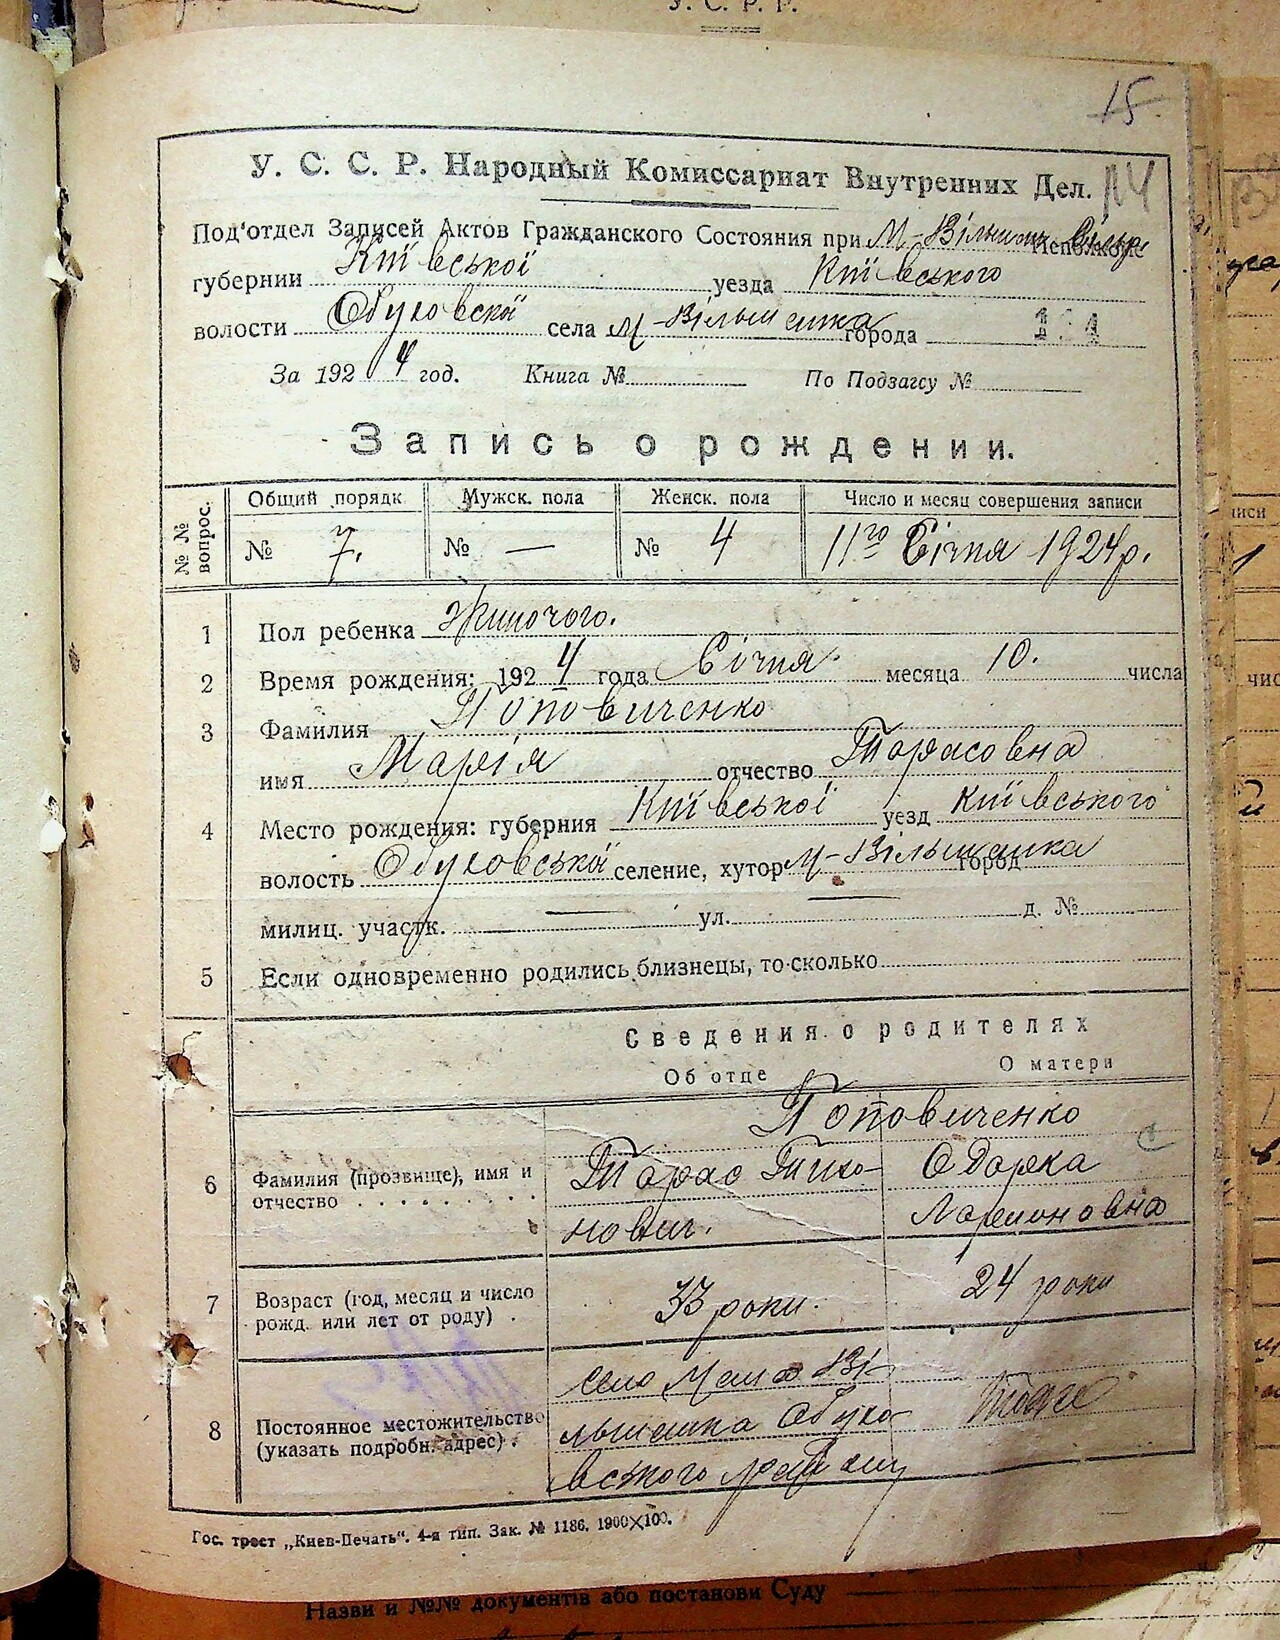 У. С. Р. Р.
15
У. С. С. Р. Народный Комиссариат Внутренних Дел. 114
Под'отдел Записей Актов Гражданского Состояния при М-Вільшан. Исполкоме
губернии Київської уезда Київського
волости Обуховскої села М-Вільшанка города 124
За 1924 год. Книга № По Подзагсу №
Запись о рождении.
№ № вопрос. Общий порядк Мужск. пола Женск. пола Число и месяц совершения записи
№ 7. № — № 4 11го Січня 1924 р.
1 Пол ребенка Жиночого.
2 Время рождения: 1924 года Січня месяца 10. числа
3 Фамилия Поповиченко
имя Марія отчество Тарасовна
4 Место рождения: губерния Київської уезд Київського
волость Обуховської селение, хутор М-Вільшанка город
милиц. участк. — ул. — д. №
5 Если одновременно родились близнецы, то сколько
Сведения о родителях
Об отце О матери
Поповиченко
6 Фамилия (прозвище), имя и отчество Тарас Тихо- Одарка
нович. Ларионовна
7 Возраст (год, месяц и число рожд. или лет от роду) 33 роки. 24 роки
село Мала Ві-
8 Постоянное местожительство (указать подробн. адрес) льшанка Обухо- тоже
вського району
Гос. трест „Киев-Печать“. 4-я тип. Зак. № 1186. 1900×100.
Назви и №№ документів або постанови Суду